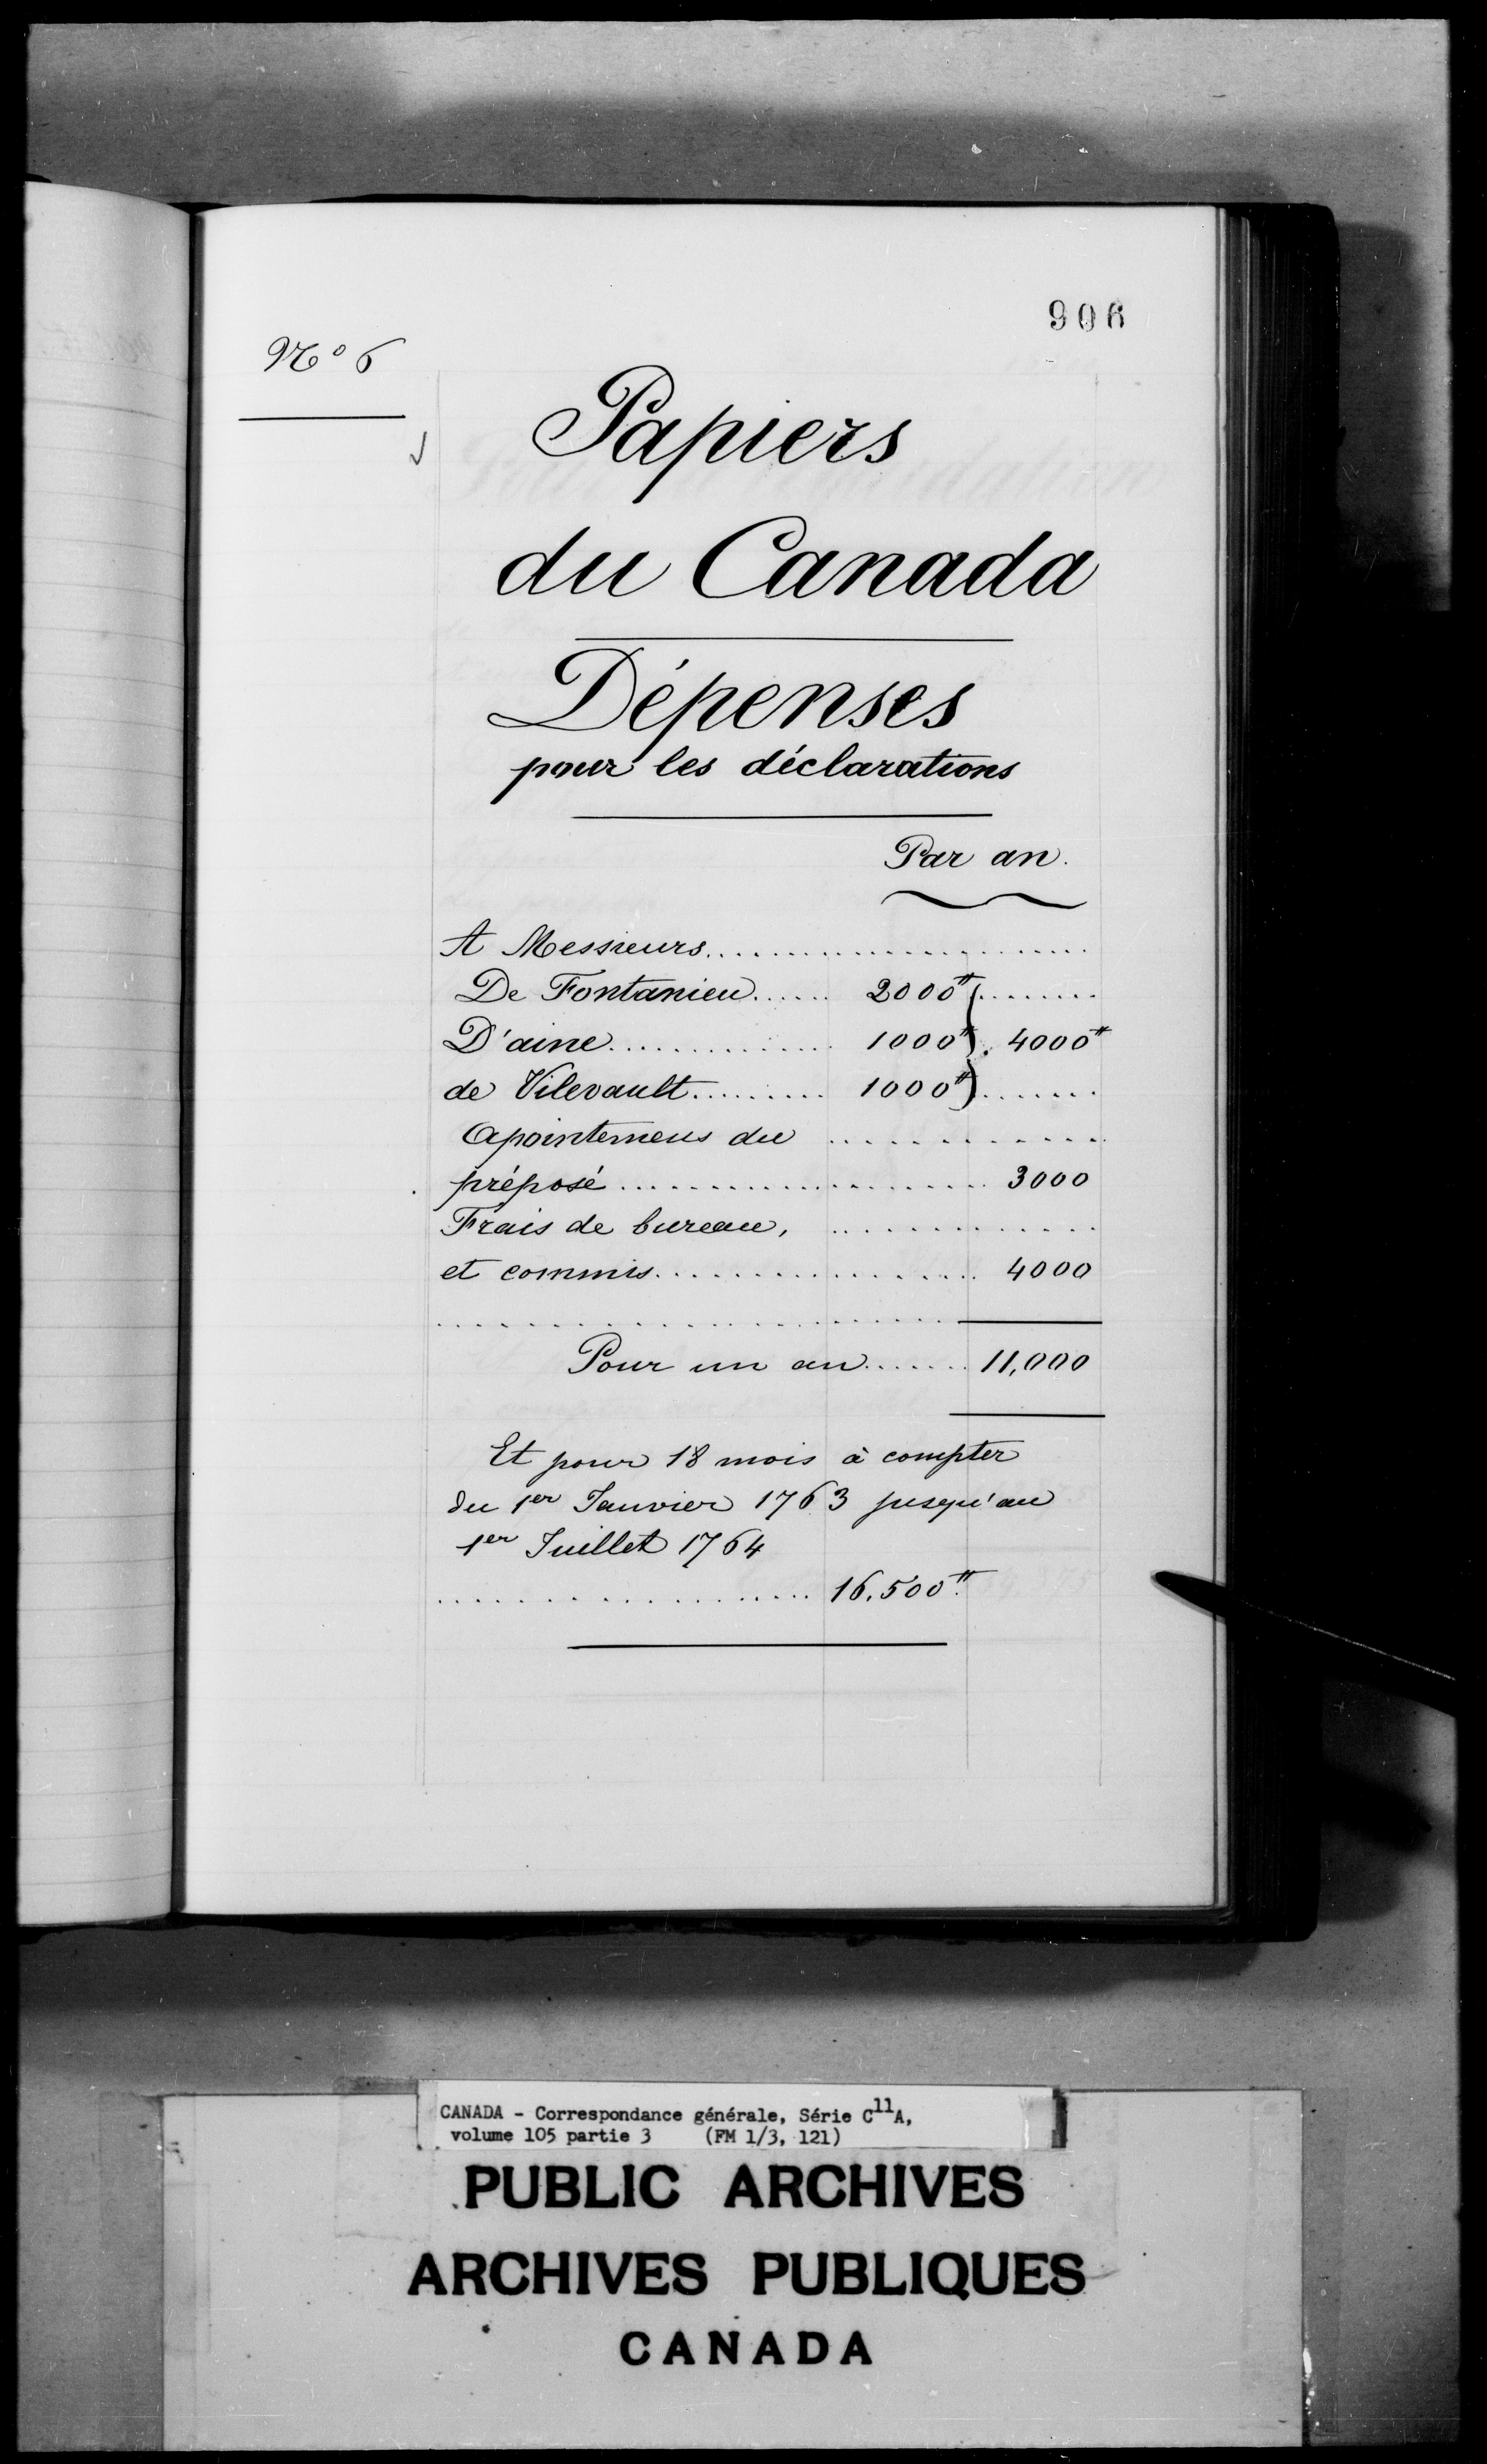 906
No 6
Papiers
du Canada
Dépenses
pour les déclarations
Par an.
A Messieurs....................
De Fontanieu...... 2000# ........
D'aine............. 1000# . 4000#
de Vilevault......... 1000# .......
Apointemens du ............
préposé.................... 3000
Frais de bureau, ............
et commis................. 4000
Pour un an....... 11,000
Et pour 18 mois à compter
du 1er Janvier 1763 jusqu'au
1er Juillet 1764
.................... 16.500#
CANADA - Correspondance générale, Série C11A,
volume 105 partie 3 (FM 1/3, 121)
PUBLIC ARCHIVES
ARCHIVES PUBLIQUES
CANADA